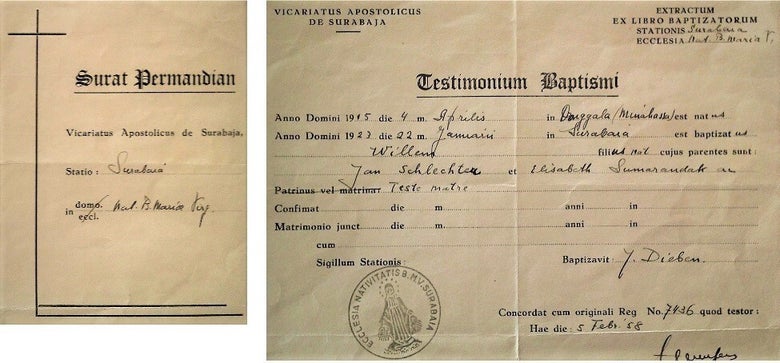 Surat Permandian
Vicariatus Apostolicus de Surabaja,
Statio: Surabaia
in domo. eccl. Nat. B. Mariae Virg.
VICARIATUS APOSTOLICUS
DE SURABAJA
EXTRACTUM
EX LIBRO BAPTIZATORUM
STATIONIS Surabaia
ECCLESIA Nat. B. Maria V.
Testimonium Baptismi
Anno Domini 1915 die 4 m. Aprilis in Donggala/(Minahassa) est natus
Anno Domini 1923 die 22 m. Januarii in Surabaia est baptizatus
Willem filius nat cujus parentes sunt:
Jan Schlechter et Elisabeth Sumarandak
Patrinus vel matrina: Teste matre
Confimat die m. anni in
Matrimonio junct. die m. anni in
cum
Sigillum Stationis: Baptizavit: J. Dieben.
ECCLESIA NATIVITATIS B.M.V. SURABAIA
Concordat cum originali Reg No. 7436 quod testor:
Hae die: 5 Febr '58